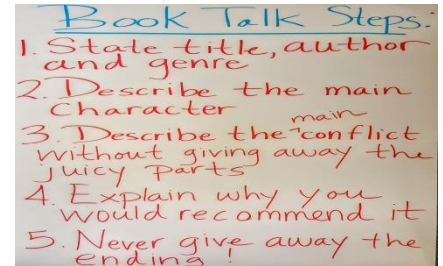 Book Talk Steps:
1. State title, author
and genre
2. Describe the main
character
3. Describe the main conflict
without giving away the
juicy parts
4. Explain why you
would recommend it
5. Never give away the
ending!